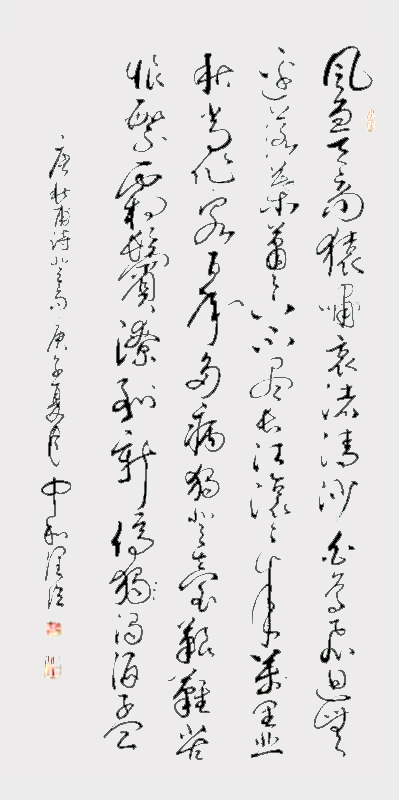 風急天高猿嘯哀渚清沙白鳥飛迴無
邊落葉蕭々下不盡長江滾々來萬里悲
秋常作客百年多病獨登臺艱難苦
恨繁霜鬢潦倒新停獨濁酒盃
唐杜甫詩登高庚子夏月中和